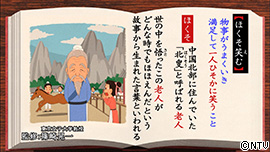 【ほくそ笑む】
物事がうまくいき
満足して一人ひそかに笑うこと
ほくそ
中国北部に住んでいた
「北叟」と呼ばれる老人
世の中を悟ったこの老人が
どんな時でもほほえんだという
故事から生まれた言葉といわれる
東京女子大学教授
監修:篠崎晃一
©NTV